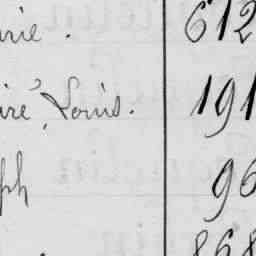 rie. 612
ire, Louis. 191
ph 96
868